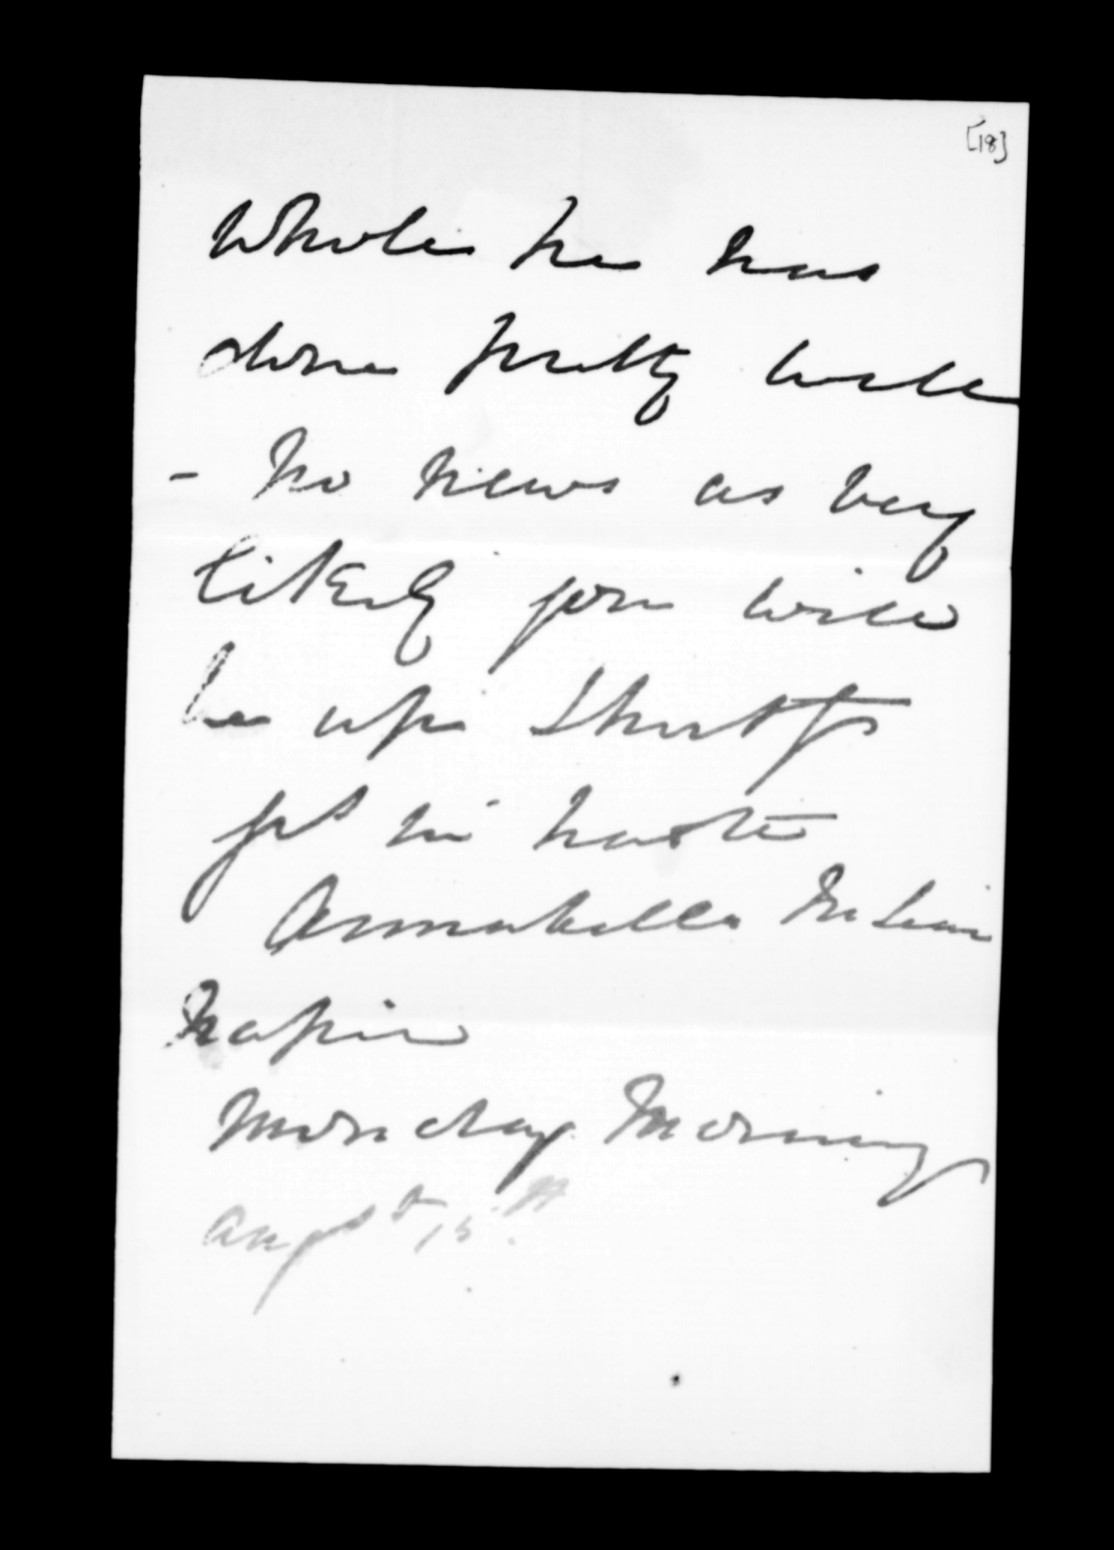 [18]
whole he has
done pretty well
- no news as very
likely you will
be up shortly
yrs in haste
Annabella McLean
Napier
Monday Morning
Augst 15th